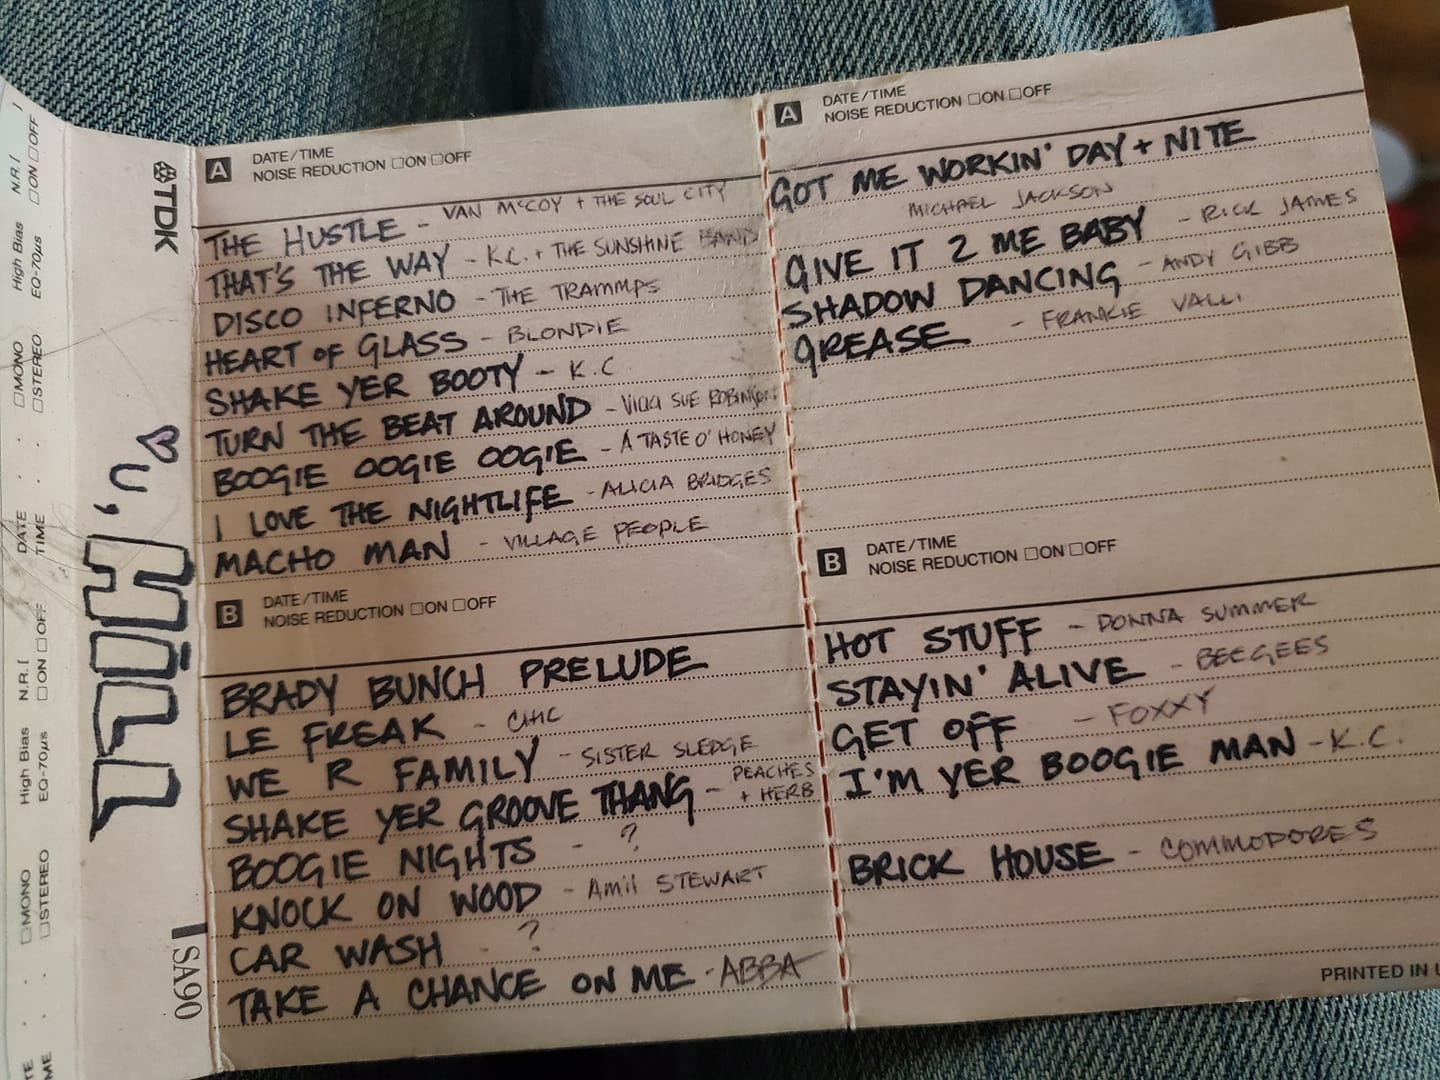 A DATE/TIME
NOISE REDUCTION □ON □OFF
THE HUSTLE - VAN McCOY + THE SOUL CITY
THAT'S THE WAY - K.C. + THE SUNSHINE BAND
DISCO INFERNO - THE TRAMMPS
HEART OF GLASS - BLONDIE
SHAKE YER BOOTY - K.C
TURN THE BEAT AROUND - VICKI SUE ROBINSON
BOOGIE OOGIE OOGIE - A TASTE O' HONEY
I LOVE THE NIGHTLIFE - ALICIA BRIDGES
MACHO MAN - VILLAGE PEOPLE
B DATE/TIME
NOISE REDUCTION □ON □OFF
BRADY BUNCH PRELUDE
LE FREAK - CHIC
WE R FAMILY - SISTER SLEDGE
SHAKE YER GROOVE THANG - PEACHES
+ HERB
BOOGIE NIGHTS - ?
KNOCK ON WOOD - AMii STEWART
CAR WASH - ?
TAKE A CHANCE ON ME - ABBA
A DATE/TIME
NOISE REDUCTION □ON □OFF
GOT ME WORKIN' DAY + NITE
MICHAEL JACKSON
GIVE IT 2 ME BABY - RICK JAMES
SHADOW DANCING - ANDY GIBB
GREASE - FRANKIE VALLI
B DATE/TIME
NOISE REDUCTION □ON □OFF
HOT STUFF - DONNA SUMMER
STAYIN' ALIVE - BEEGEES
GET OFF - FOXXY
I'M YER BOOGIE MAN - K.C.
BRICK HOUSE - COMMODORES
PRINTED IN U
TDK
♡ U, HiLL
SA90
N.R. [ ]
□ON □OFF
High Bias
EQ-70µs
□MONO
□STEREO
DATE :
TIME :
N.R. [
□ON □OFF
High Bias
EQ-70µs
□MONO
□STEREO
TE
ME